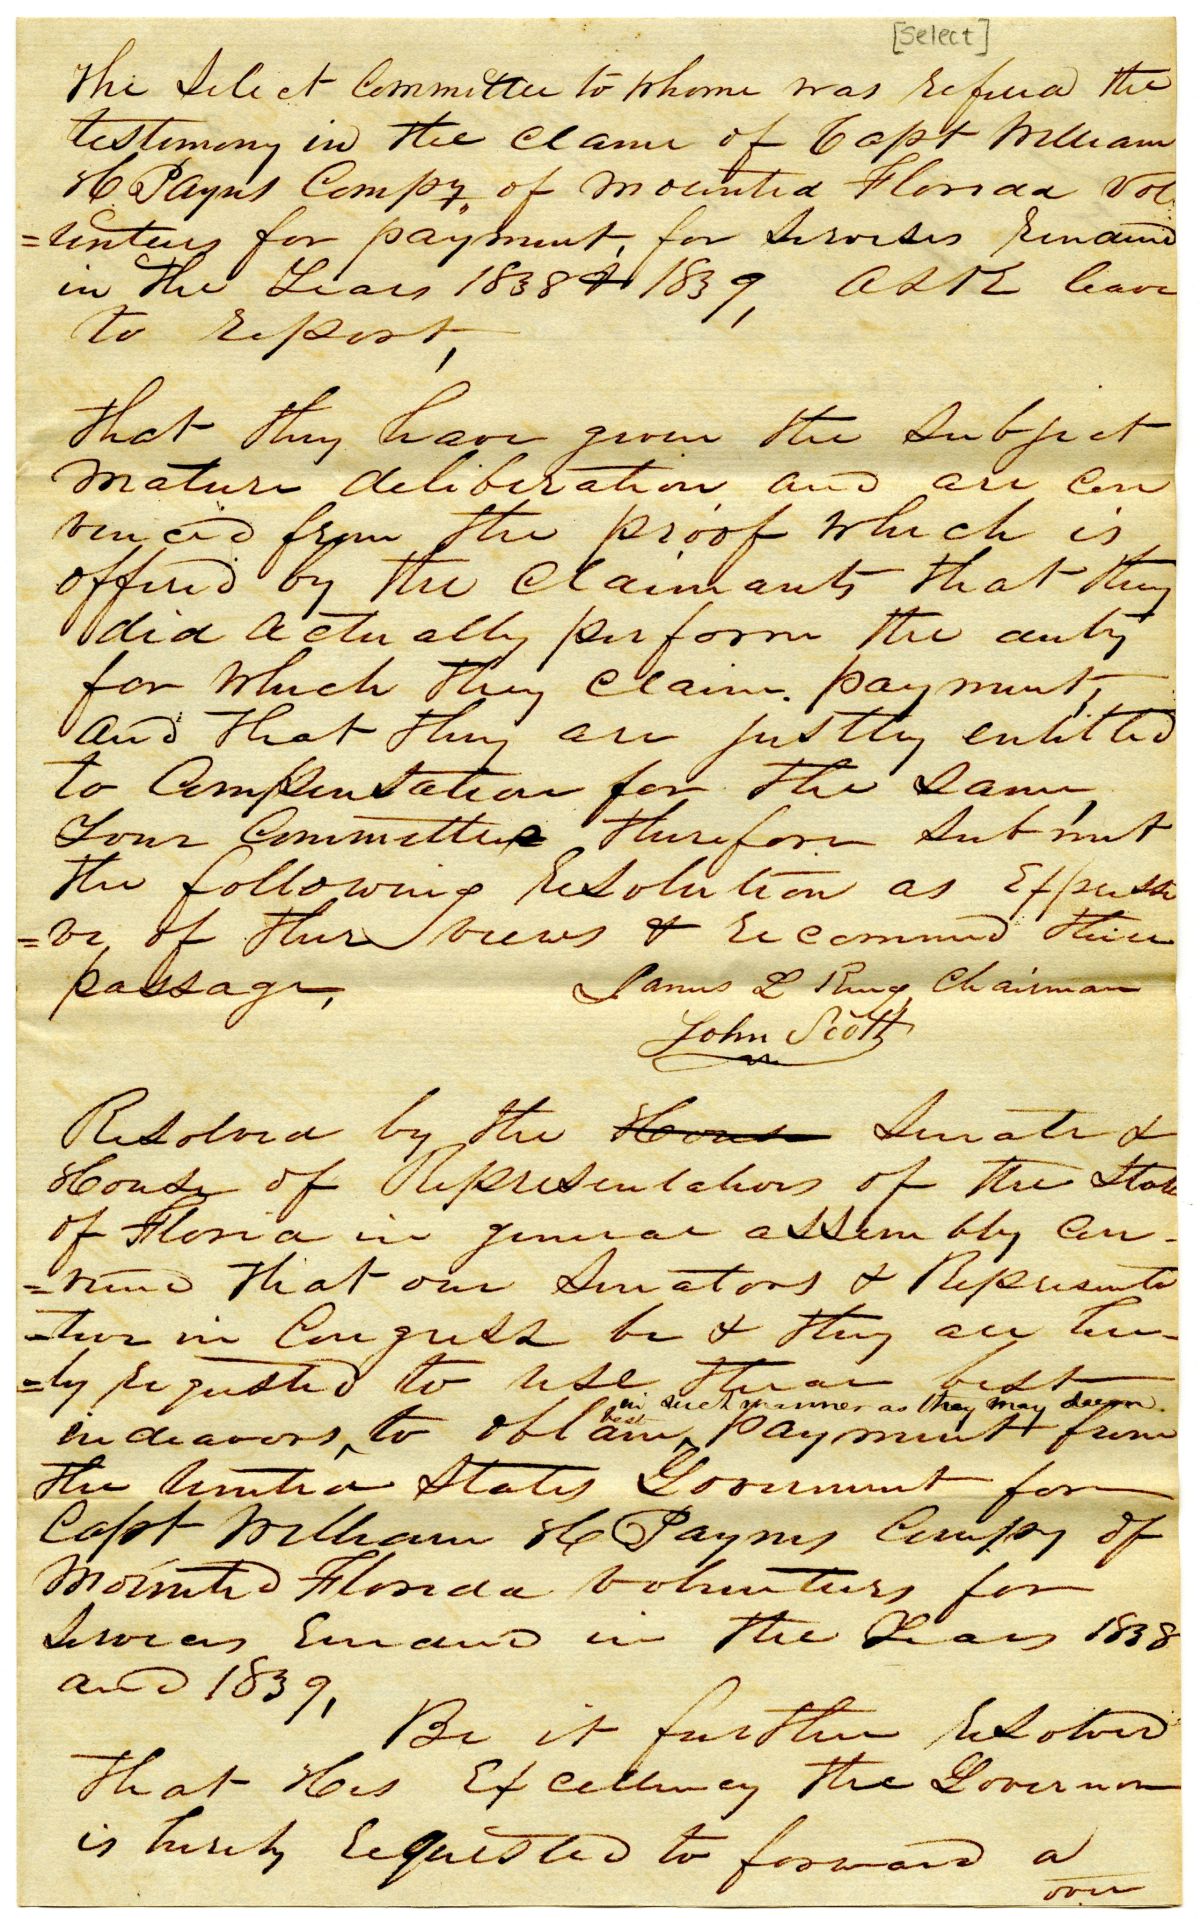 [Select]
The Select Committee to whome was refered the
testimony in the claim of Capt William
H Paynes Compy, of mounted Florida vol
=unteers for payment, for services rendered
in the Years 1838 & 1839, ask leave
to report,
That they have given the subject
mature deliberation and are con
vinced from the proof which is
offered by the claimants that they
did actually perform the duty
for which they claim payment,
and that they are justly entitled
to compensation for the same,
Your Committee therefore submit
the following resolution as expressi
=ve of their views & recommend their
passage,
James L King Chairman
John Scott
Resolved by the House Senate &
House of Representatives of the State
of Florida in general assembly con-
=vened That our Senators & Representa
=tive in Congress be & they are here-
=by requested to use their best
in such manner as they may deem
best
indeavors, to obtain, payment from
the United States Government for
Capt William H Paynes Compy of
Mounted Florida volunteers for
services rendered in the Years 1838
and 1839,
Be it further resolved
that His Excellency the Governor
is hereby requested to forward a
over